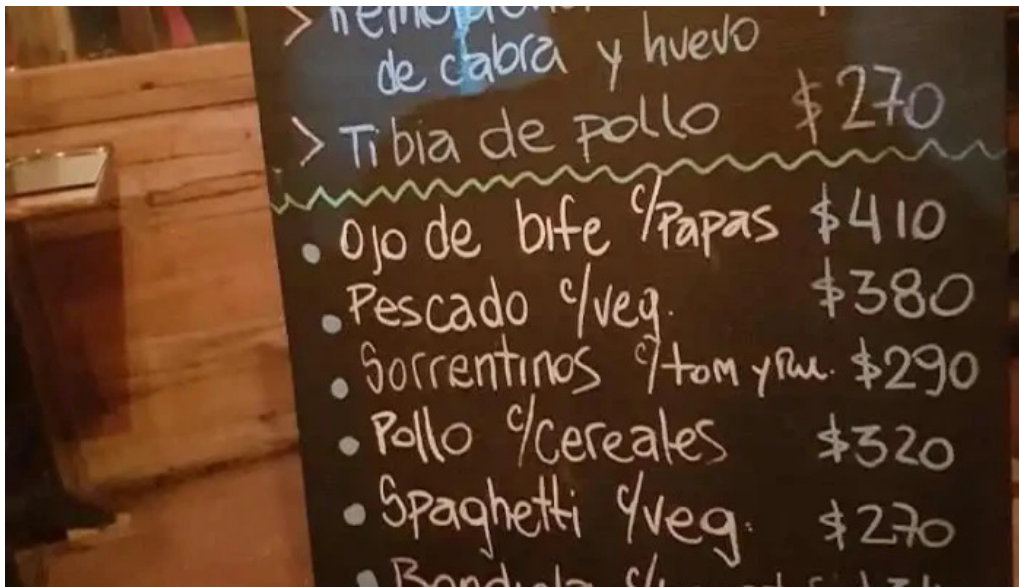 > Remo
de cabra y huevo
> Tibia de pollo $270
• Ojo de bife c/Papas $410
• Pescado c/veg. $380
• Sorrentinos c/tom y $290
• Pollo c/cereales $320
• Spaghetti c/veg. $270
• Bondiola c/